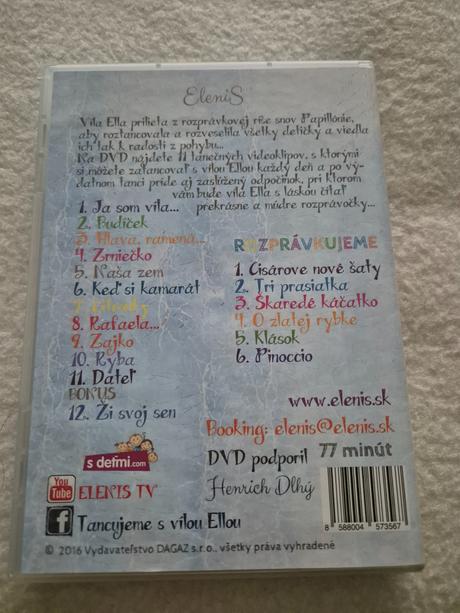 EleniS
Víla Ella prilieta z rozprávkovej ríše snov Papillónie,
aby roztancovala a rozveselila všetky detičky a viedla
ich tak k radosti z pohybu...
Na DVD nájdete 11 tanečných videoklipov, s ktorými
si môžete zatancovať s vílou Ellou každý deň a po vý-
datnom tanci príde aj zaslúžený odpočinok, pri ktorom
vám bude víla Ella s láskou čítať
prekrásne a múdre rozprávočky...
1. Ja som víla...
2. Budíček
3. Hlava, ramená...
4. Zrniečko
5. Naša zem
6. Keď si kamarát
7.
8. Rafaela...
9. Zajko
10. Ryba
11. Ďateľ
BONUS
12. Ži svoj sen
ROZPRÁVKUJEME
1. Cisárove nové šaty
2. Tri prasiatka
3. Škaredé káčatko
4. O zlatej rybke
5. Klások
6. Pinoccio
www.elenis.sk
Booking: elenis@elenis.sk
s deťmi.com
DVD podporil
77 minút
Henrich Dlhý
You Tube
ELENIS TV
f
Tancujeme s vílou Ellou
8 588004 573567
© 2016 Vydavateľstvo DAGAZ s.r.o., všetky práva vyhradené